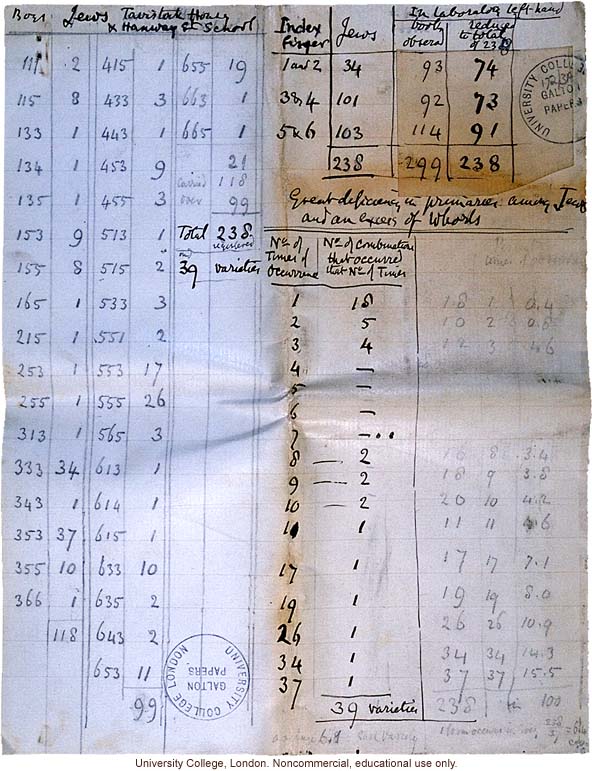 Boys Jews Tavistock House
& Hanway St School
111 2 415 1 655 19
115 8 433 3 663 1
133 1 443 1 665 1
134 1 453 9 21
carried 118
135 1 455 3 over 99
153 9 513 1 Total 238
registered
155 8 515 2 39 varieties
165 1 533 3
215 1 551 2
253 1 553 17
255 1 555 26
313 1 565 3
333 34 613 1
343 1 614 1
353 37 615 1
355 10 633 10
366 1 635 2
118 643 2
653 11
99
Index
Finger Jews In laboratory left-hand
observed reduced
to total
of 238
1 and 2 34 93 74
3 & 4 101 92 73
5 & 6 103 114 91
238 299 238
Great deficiency in primaries among Jews
and an excess of Whorls
No. of
Times of
Occurrence
No. of Combinations
that occurred
that No. of Times
1 18 18 1 0.4
2 5 10 2
3 4 12 3
4 —
5 —
6 —
7 —
8 — 2 16 8 3.4
9 — 2 18 9 3.8
10 — 2 20 10 4.2
11 1 11 11 4.6
17 1 17 17 7.1
19 1 19 19 8.0
26 1 26 26 10.9
34 1 34 34 14.3
37 1 37 37 15.5
39 varieties 238 100
UNIVERSITY COLLEGE LONDON
GALTON
PAPERS
UNIVERSITY COLLEGE
GALTON
PAPERS
University College, London. Noncommercial, educational use only.